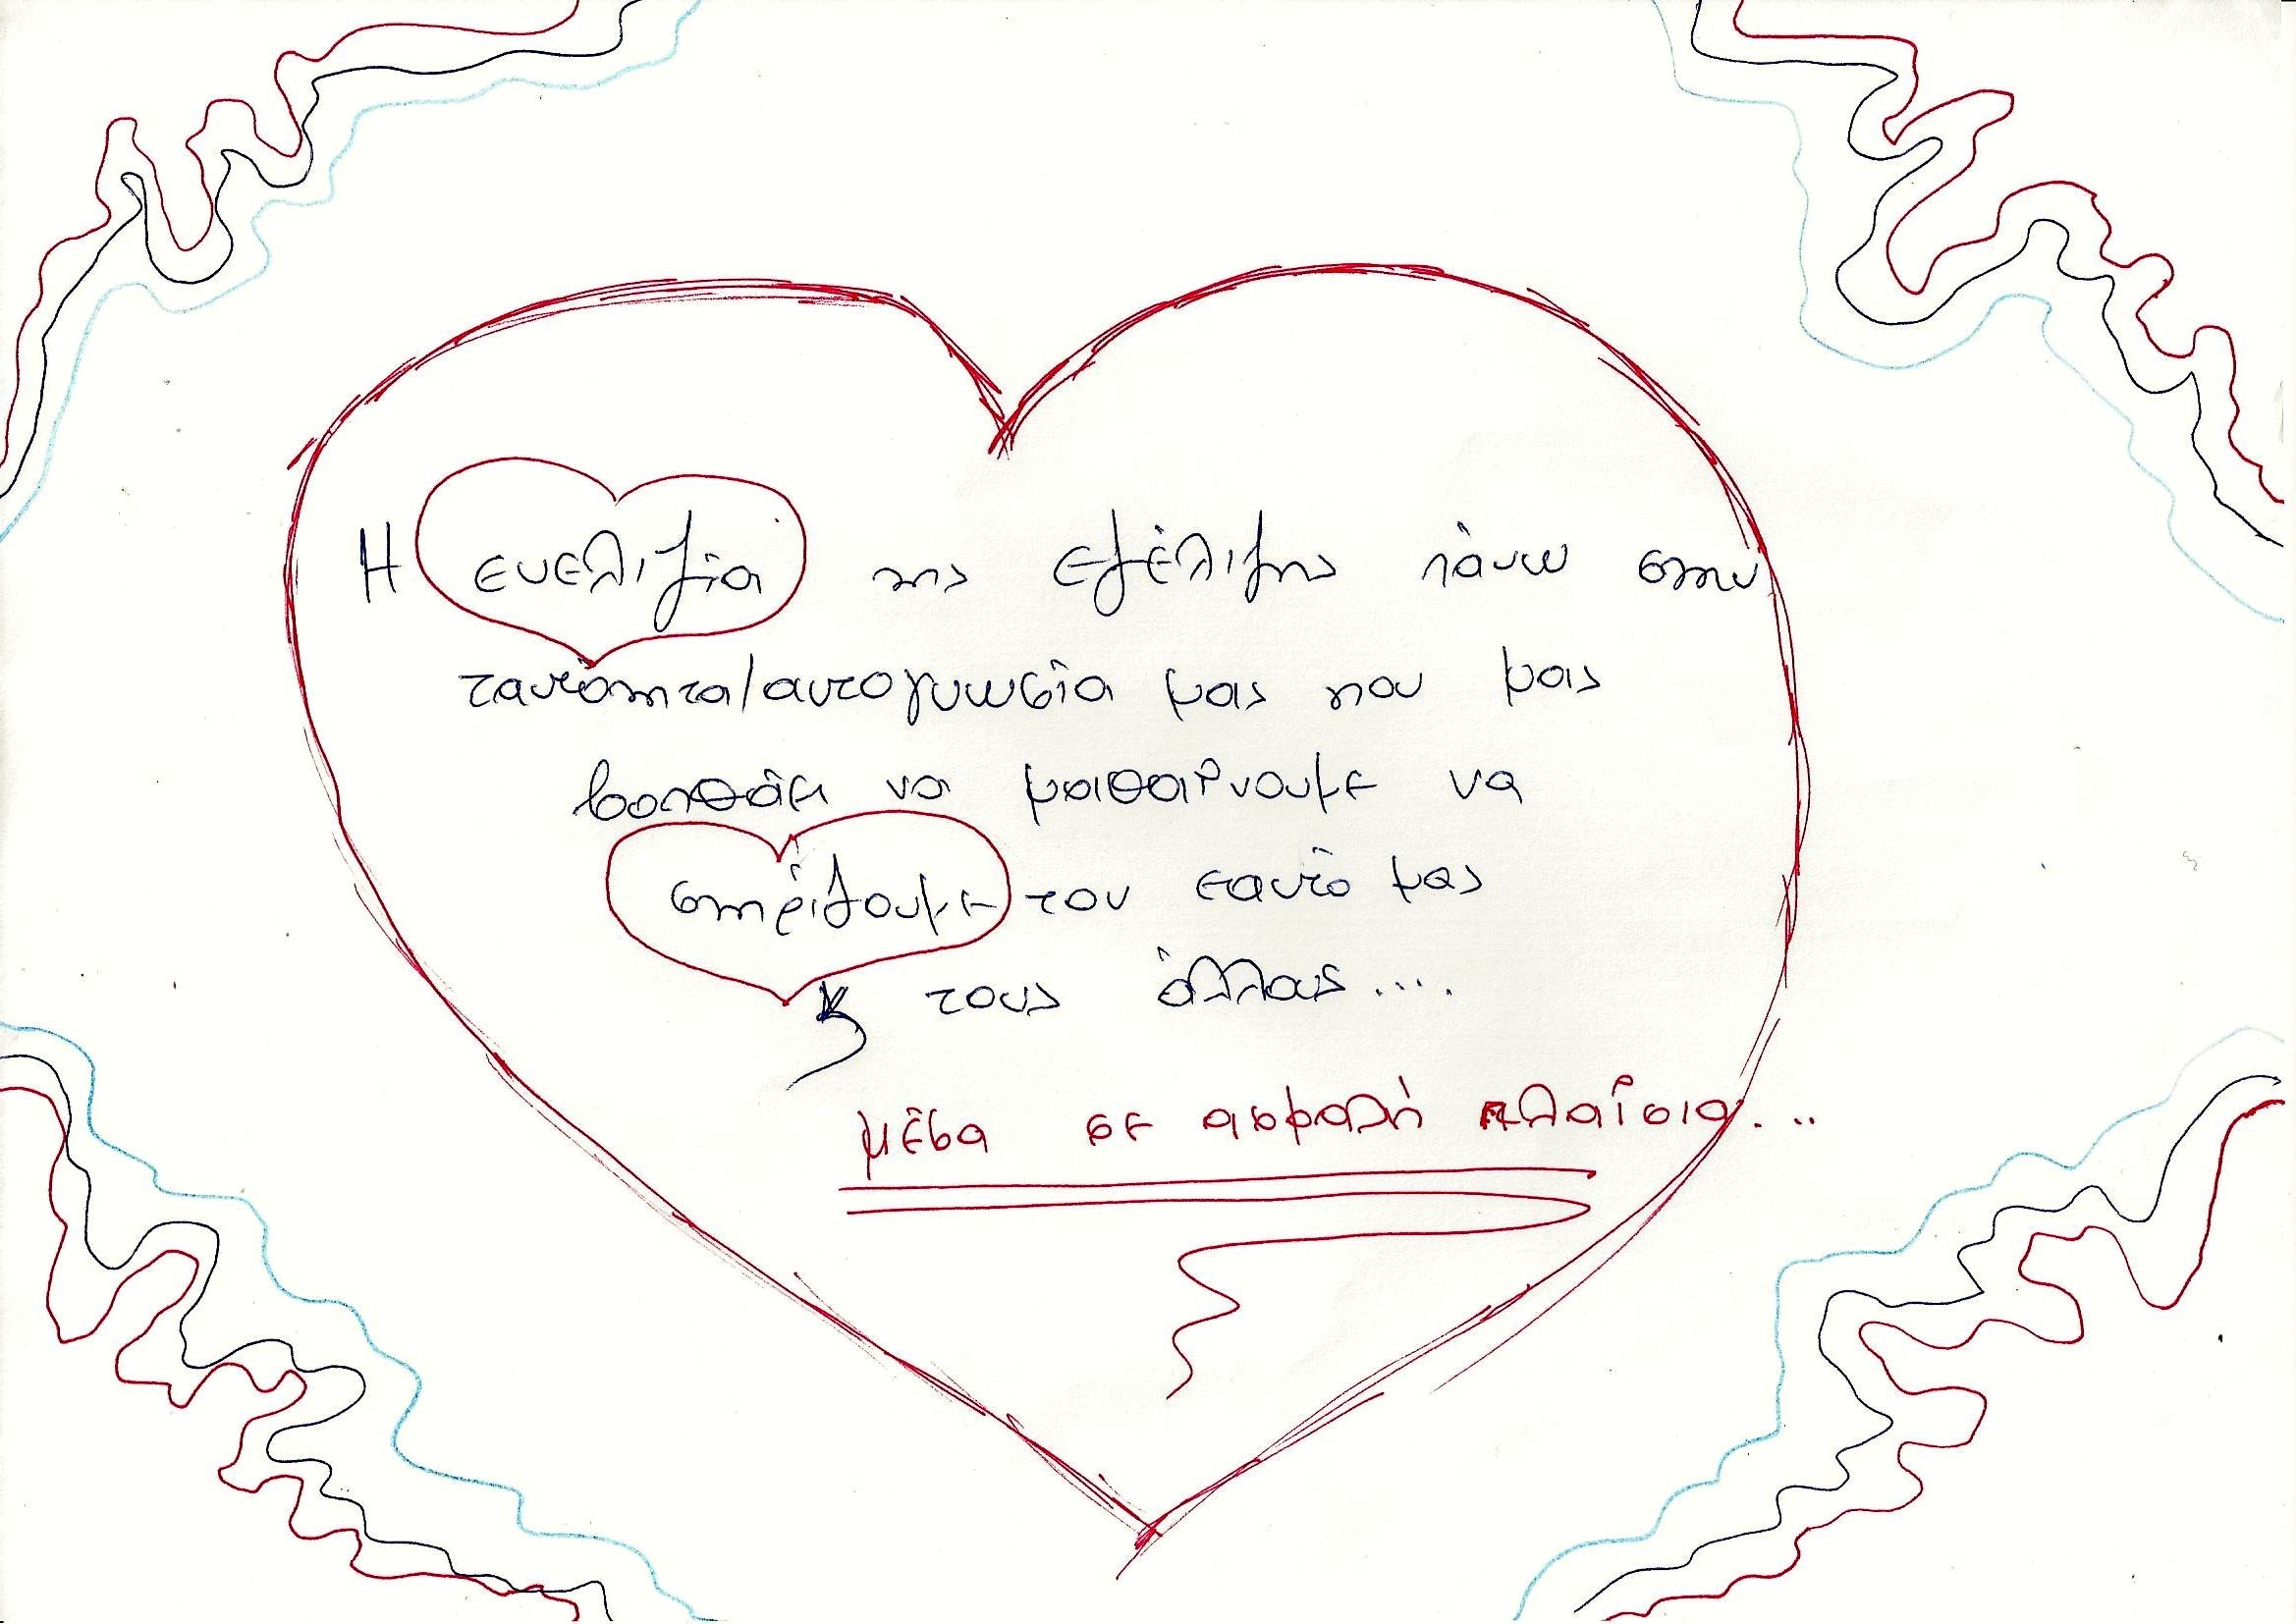 Η ευελιξία της εξέλιξης πάνω στην
ταυτότητα/αυτογνωσία μας που μας
βοηθάει να μαθαίνουμε να
στηρίζουμε τον εαυτό μας
ϗ τους άλλους....
μέσα σε ασφαλή πλαίσια...